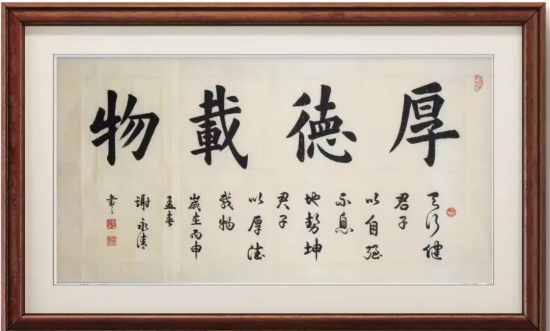 厚德載物
天行健
君子
以自强
不息
地勢坤
君子
以厚德
載物
歲在丙申
孟春
謝永清
書